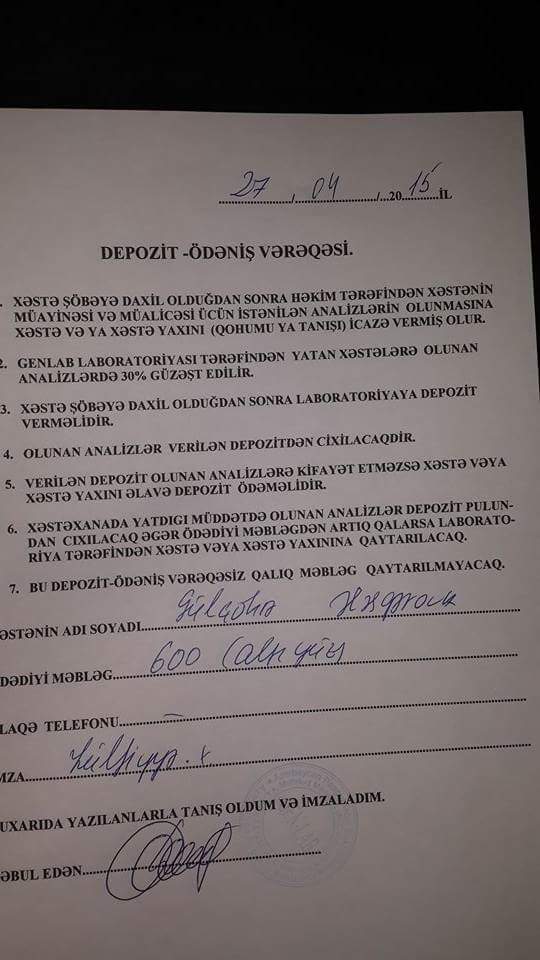 27 / 04 / 2015 İL
DEPOZİT -ÖDƏNİŞ VƏRƏQƏSİ.
. XƏSTƏ ŞÖBƏYƏ DAXİL OLDUĞDAN SONRA HƏKİM TƏRƏFİNDƏN XƏSTƏNİN
MÜAYİNƏSİ VƏ MÜALİCƏSİ ÜCÜN İSTƏNİLƏN ANALİZLƏRİN OLUNMASINA
XƏSTƏ VƏ YA XƏSTƏ YAXINI (QOHUMU YA TANIŞI) İCAZƏ VERMİŞ OLUR.
2. GENLAB LABORATORİYASI TƏRƏFİNDƏN YATAN XƏSTƏLƏRƏ OLUNAN
ANALİZLƏRDƏ 30% GÜZƏŞT EDİLİR.
3. XƏSTƏ ŞÖBƏYƏ DAXİL OLDUĞDAN SONRA LABORATORİYAYA DEPOZİT
VERMƏLİDİR.
4. OLUNAN ANALİZLƏR VERİLƏN DEPOZİTDƏN CİXILACAQDİR.
5. VERİLƏN DEPOZİT OLUNAN ANALİZLƏRƏ KİFAYƏT ETMƏZSƏ XƏSTƏ VƏYA
XƏSTƏ YAXINI ƏLAVƏ DEPOZİT ÖDƏMƏLİDİR.
6. XƏSTƏXANADA YATDIGI MÜDDƏTDƏ OLUNAN ANALİZLƏR DEPOZİT PULUN-
DAN CIXILACAQ ƏGƏR ÖDƏDİYİ MƏBLƏGDƏN ARTIQ QALARSA LABORATO-
RİYA TƏRƏFİNDƏN XƏSTƏ VƏYA XƏSTƏ YAXININA QAYTARILACAQ.
7. BU DEPOZİT-ÖDƏNİŞ VƏRƏQƏSİZ QALIQ MƏBLƏG QAYTARILMAYACAQ.
ƏSTƏNİN ADI SOYADI
DƏDİYİ MƏBLƏG 600 (altı yüz)
LAQƏ TELEFONU —
MZA
UXARIDA YAZILANLARLA TANIŞ OLDUM VƏ İMZALADIM.
ƏBUL EDƏN